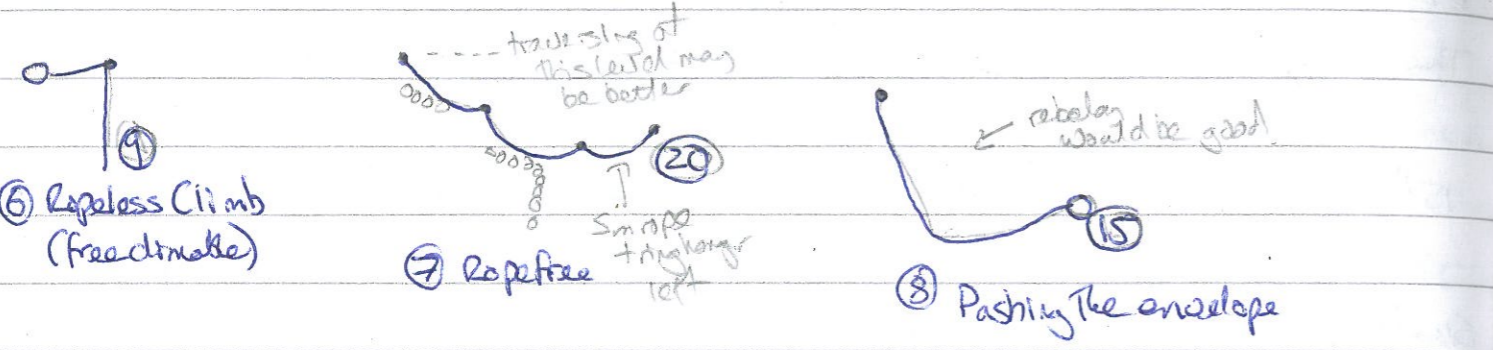 9
⑥ Ropeless Climb
(freeclimbable)
---- traversing at
this level may
be better
20
5m rope
+ ringhanger
left
⑦ Ropefree
← rebelay
would be good.
15
⑧ Pushing The envelope